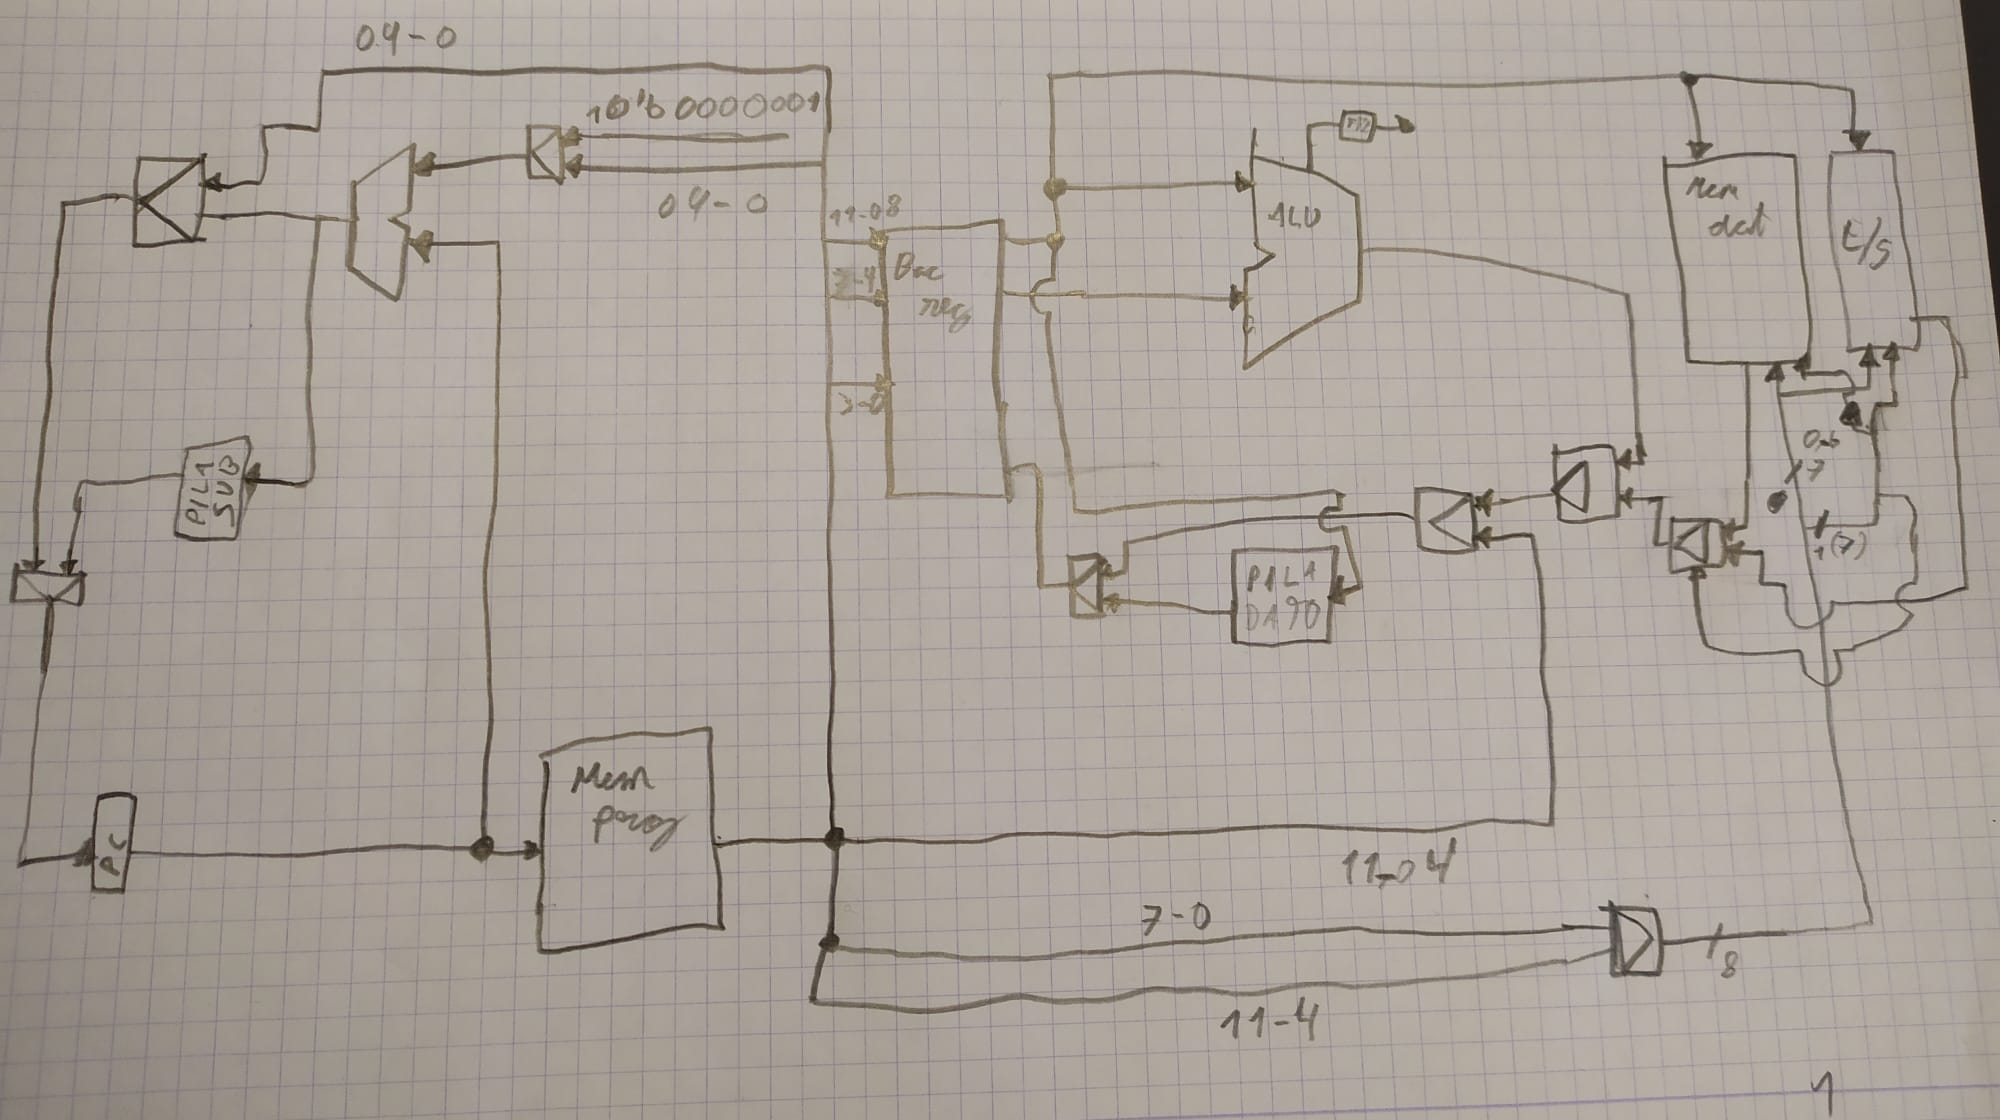 09-0
10'b0000001
09-0
11-08
7-4
3-0
Banc
reg
ALU
Mem
dat
E/S
0..6
7
1(7)
PILA
SUB
PILA
DATO
PC
Mem
prog
11-04
7-0
11-4
8
1